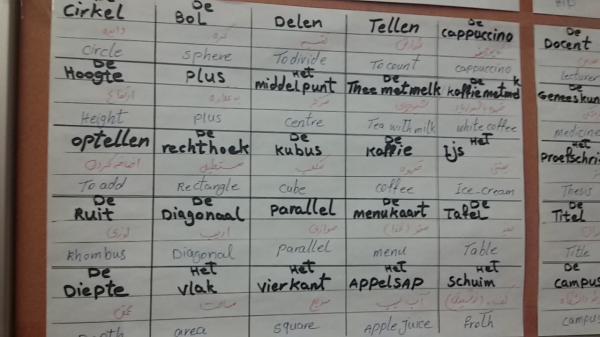 De De De
Cirkel Bol Delen Tellen cappuccino
دایره کره تقسیم
Circle Sphere To divide To count cappuccino
De Het De De
Hoogte plus middelpunt Thee met melk koffie met melk
ارتفاع مرکز
Height plus centre Tea with milk white coffee
De De De Het
optellen rechthoek kubus koffie ijs
اضافه کردن مستطیل مکعب قهوه بستنی
To add Rectangle cube coffee Ice-cream
De De De De
Ruit Diagonaal parallel menukaart Tafel
لوزی موازی میز
Rhombus Diagonal parallel menu Table
De Het Het Het Het
Diepte vlak vierkant APPELSAP schuim
عمق مساحت مربع آب سیب
Depth area square Apple juice froth
De
Docent
lecturer
De
medicine
Het
Thesis
De
Titel
Title
De
campus
campus